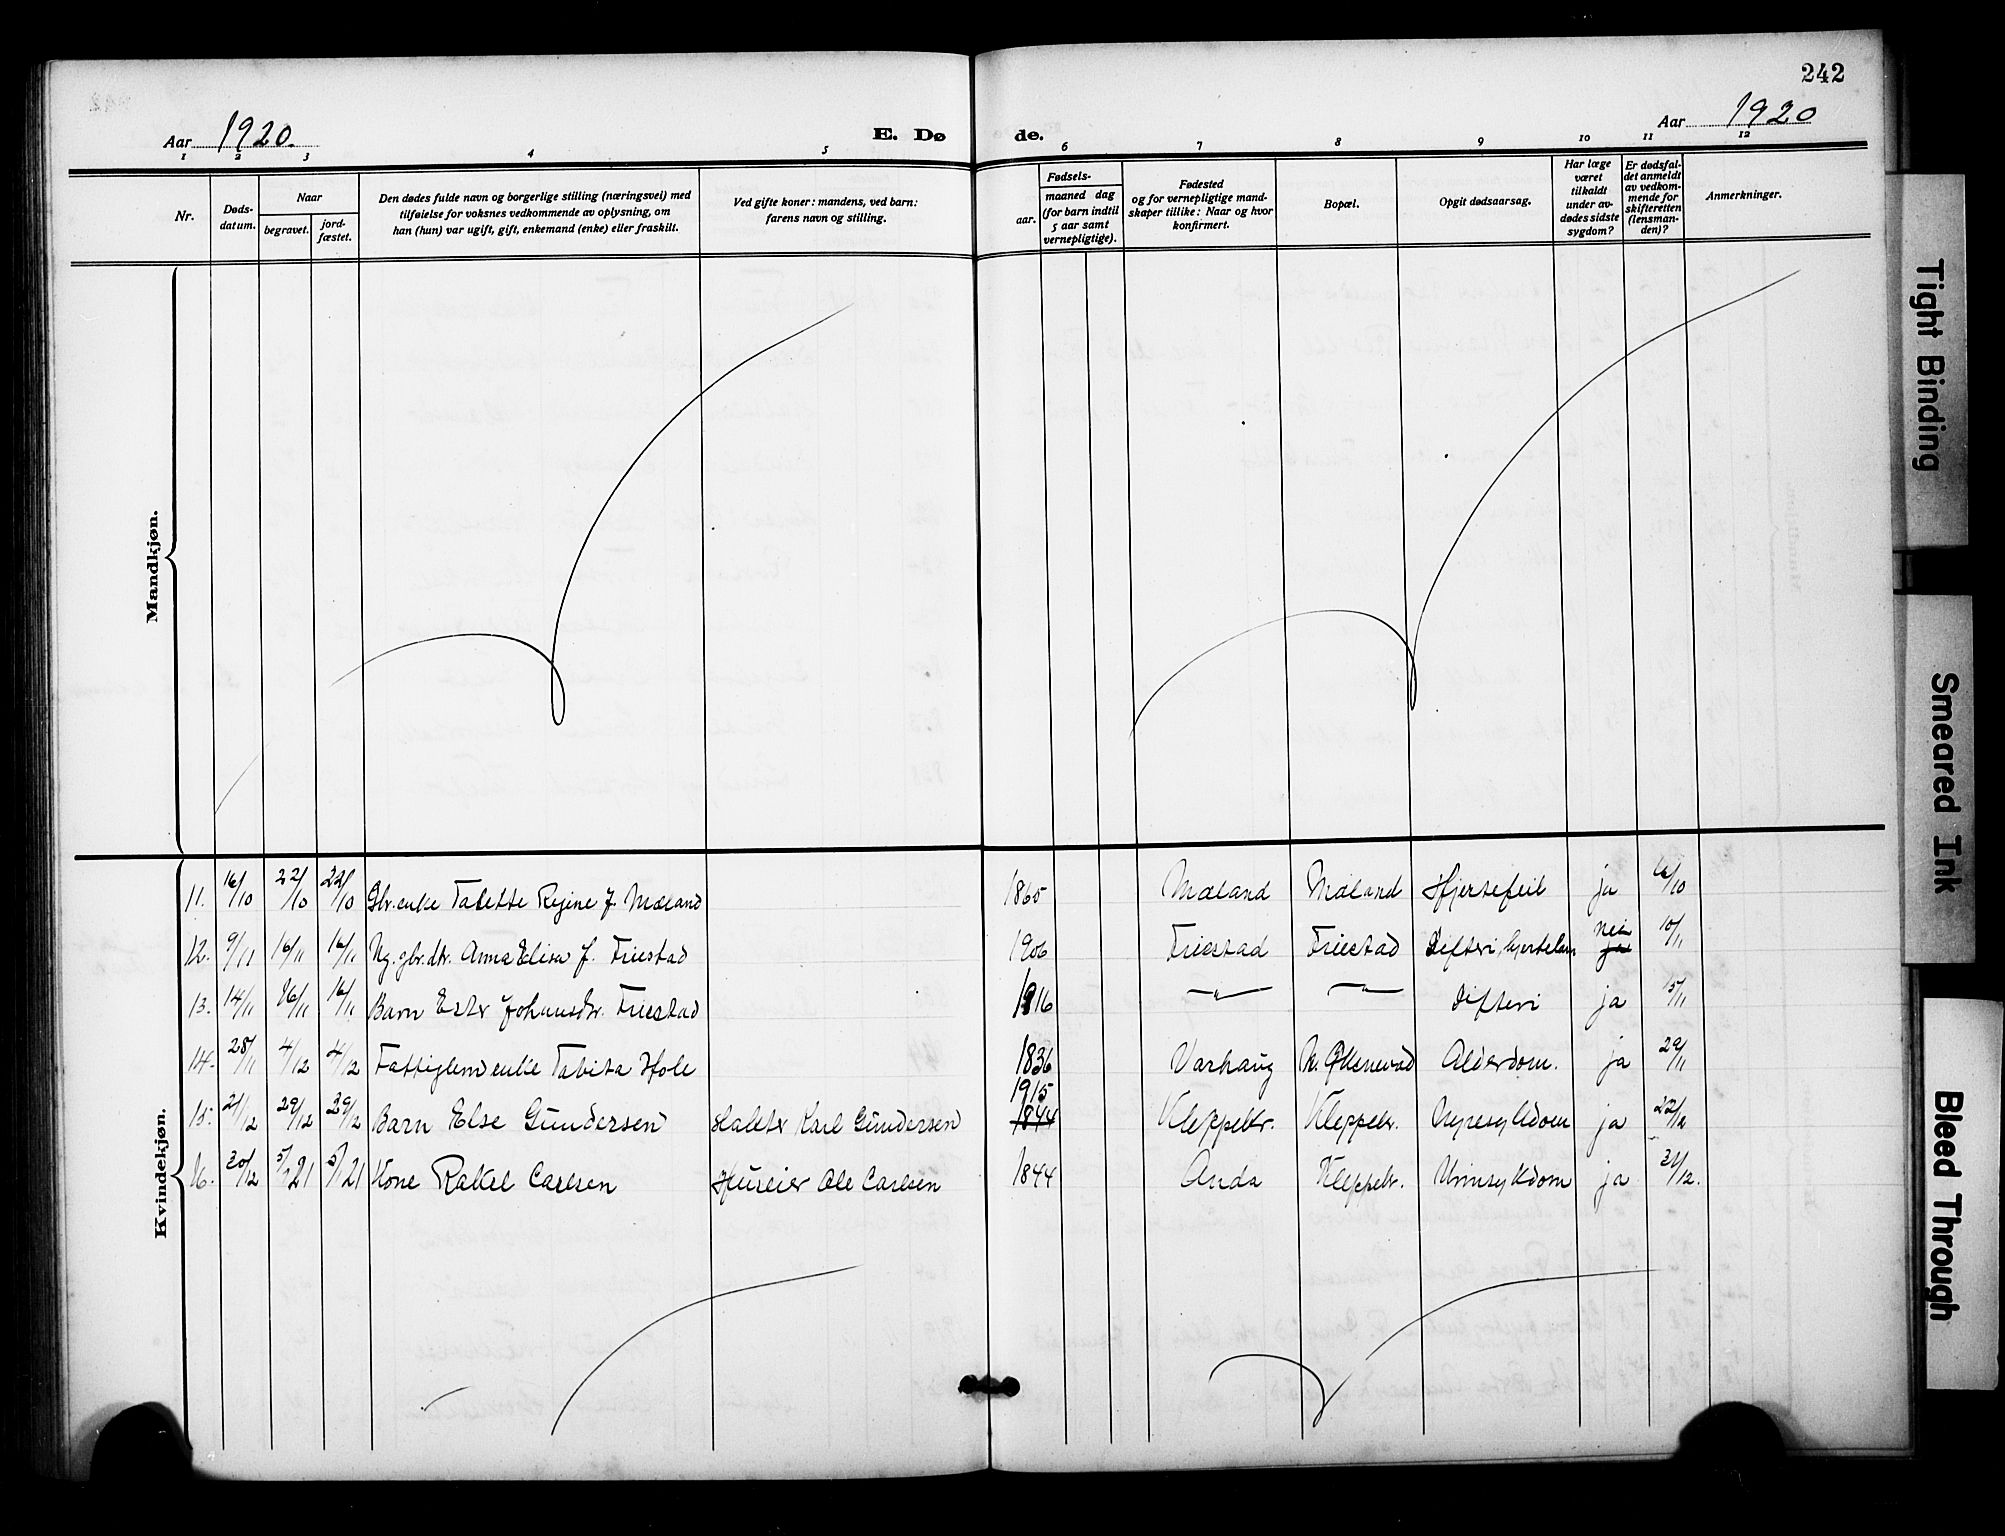 242
Aar 1920.
E. Dø de.
Aar 1920
1 2 3 4 5 6 7 8 9 10 11 12
Nr.
Døds-
datum.
Naar
begravet.
jord-
fæstet.
Den dødes fulde navn og borgerlige stilling (næringsvei) med
tilføielse for voksnes vedkommende av oplysning, om
han (hun) var ugift, gift, enkemand (enke) eller fraskilt.
Ved gifte koner: mandens, ved barn:
farens navn og stilling.
Fødsels-
aar.
maaned dag
(for barn indtil
5 aar samt
vernepligtige).
Fødested
og for vernepligtige mand-
skaper tillike: Naar og hvor
konfirmert.
Bopæl.
Opgit dødsaarsag.
Har læge
været
tilkaldt
under av-
dødes sidste
sygdom?
Er dødsfal-
det anmeldt
av vedkom-
mende for
skifteretten
(lensman-
den)?
Anmerkninger.
Mandkjøn.
Kvindekjøn.
11. 16/10 22/10 22/10 Gbr.enke Tabette Regine f. Mæland 1865 Mæland Mæland Hjertefeil ja /10
12. 9/11 16/11 16/11 Ug. gbr.dtr. Anna Elisa f. Friestad 1906 Friestad Friestad Difteri, hjertelam nei ja 10/11
13. 14/11 16/11 16/11 Barn Ester Johansdtr. Friestad 1916 -"- -"- Difteri ja 15/11
14. 28/11 4/12 4/12 Fattiglem enke Tabita Hole 1836 Varhaug N. Øksnevad Alderdom. ja 29/11
15. 21/12 29/12 29/12 Barn Else Gundersen Karl Gundersen 1915 1844 Kleppekr. Kleppekr. Nyresykdom ja 22/12
16. 30/12 5/1 21 5/1 21 Kone Rakel Carlsen Huseier Ole Carlsen 1844 Anda Kleppekr. Urinsykdom ja 31/12.
Tight Binding
Smeared Ink
Bleed Through